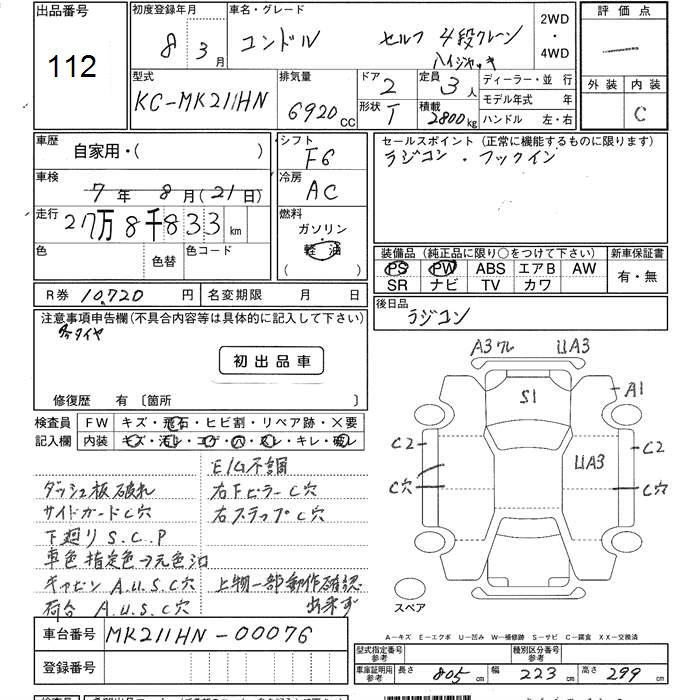 出品番号
112
初度登録年月
8年 3月
車名・グレード
コンドル セルフ 4段クレーン
ハイジャッキ
2WD
・
4WD
評価点
外装 内装
C
型式
KC-MK211HN
排気量
6920cc
ドア 2
形状 T
定員 3人
積載 2800kg
ディーラー・並行
モデル年式 年
ハンドル 左・右
車歴
自家用・( )
車検
7年 8月(21日)
走行
27万8千833km
色 色替 色コード
シフト
F6
冷房
AC
燃料
ガソリン
・
軽油
( )
セールスポイント(正常に機能するものに限ります)
ラジコン・フックイン
装備品(純正品に限り○をつけて下さい)
PS PW ABS エアB AW
SR ナビ TV カワ
新車保証書
有・無
R券 10,720円
名変期限 月 日
後日品
ラジコン
注意事項申告欄(不具合内容等は具体的に記入して下さい)
冬タイヤ
初出品車
修復歴 有〔箇所 〕
検査員
記入欄
FW キズ・飛石・ヒビ割・リペア跡・×要
内装 キズ・汚レ・コゲ・穴・スレ・キレ・破レ
E/G不調
ダッシュ板破れ 右FピラーC穴
サイドガードC穴 右ステップC穴
下廻りS.C.P
車色指定色→元色ロ
キャビンA.U.S.C穴 上物一部動作確認
荷台A.U.S.C穴 出来ず
車台番号 MK211HN-00076
登録番号
A3ワレ UA3
S1
A1
C2
C2
UA3
C穴
C穴
スペア
A-キズ E-エクボ U-凹み W-補修跡 S-サビ C-腐食 XX-交換済
型式指定番号
参考
種別区分番号
参考
車庫証明用
参考
長さ 805cm 幅 223cm 高さ 299cm